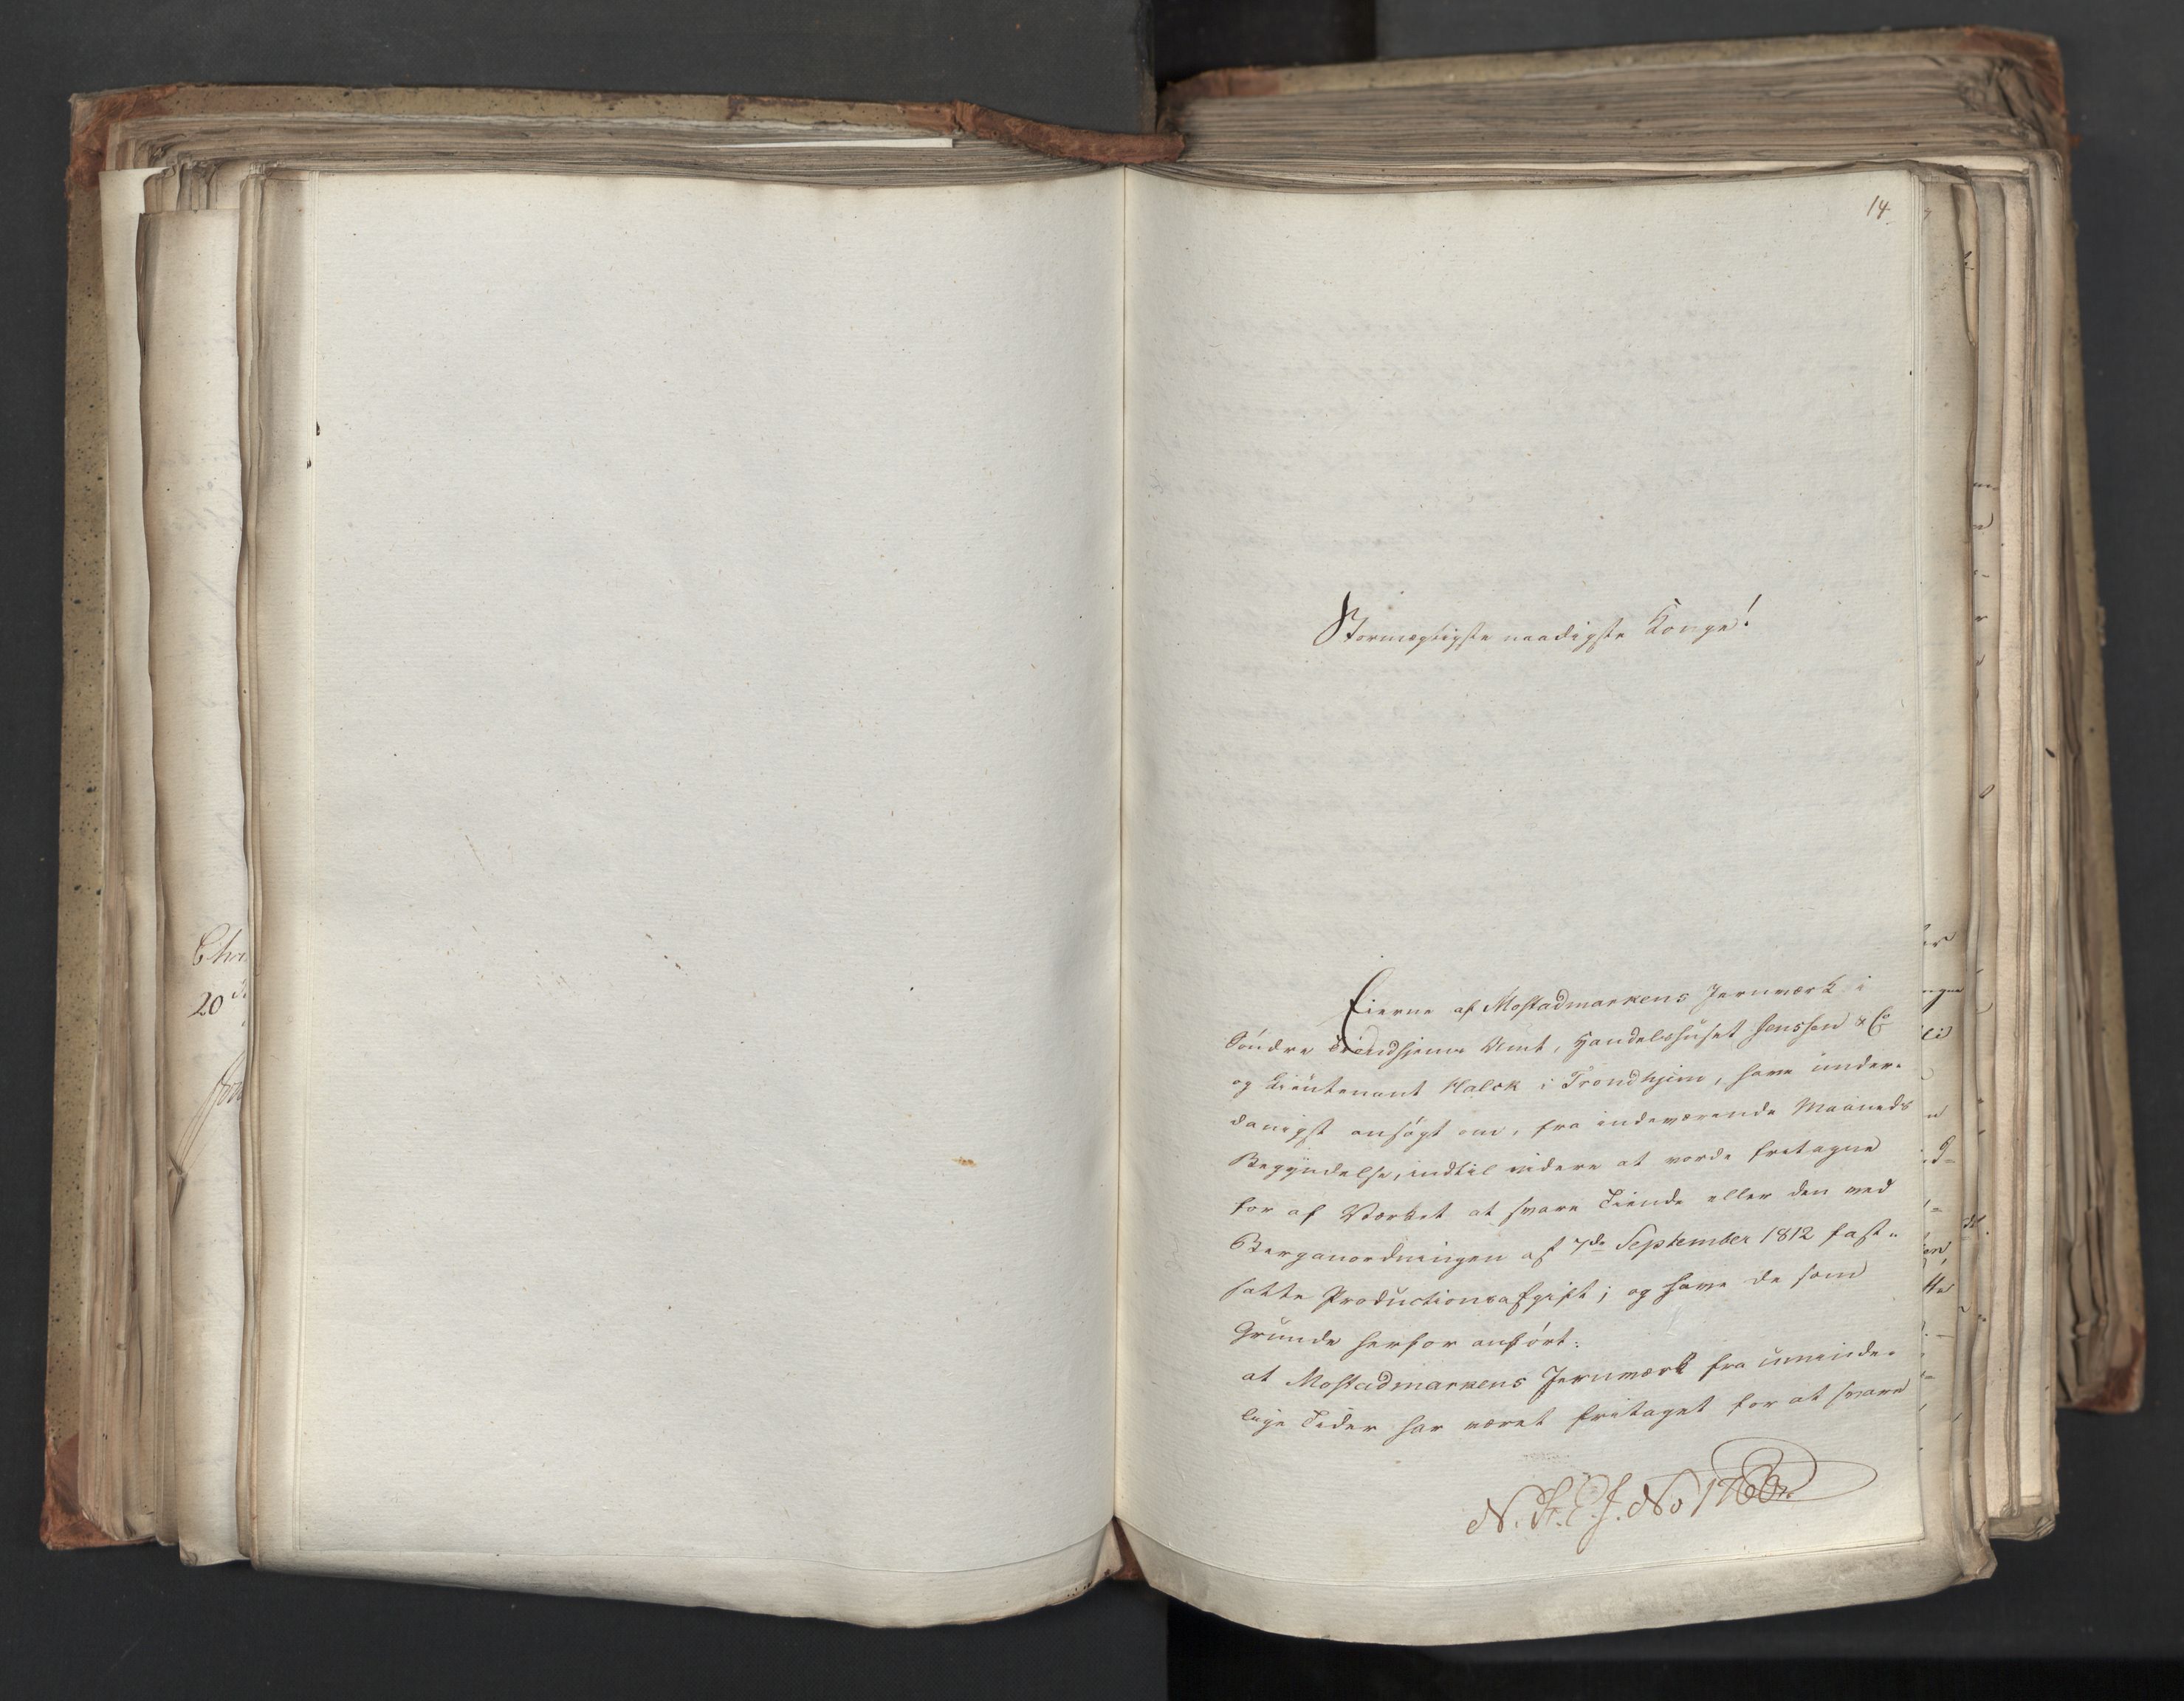 14.
Stormægtigste naadigste Konge!
Eierne af Mostadmarkens Jernværk i
Söndre Trondhjems Amt, Handelshuset Jenssen & Co
og Lieutenant Halck i Trondhjem, have under-
danigst ansögt om, fra indeværende Maaneds
Begyndelse, indtil videre at vorde fritagne
for af Værket at svare Tiende eller den ved
Berganordningen af 7de September 1812 fast-
satte Productionsafgift; og have de som
Grunde herfor anfört:
at Mostadmarkens Jernværk fra uminde-
lige Tider har været fritaget for at svare
Chri
20